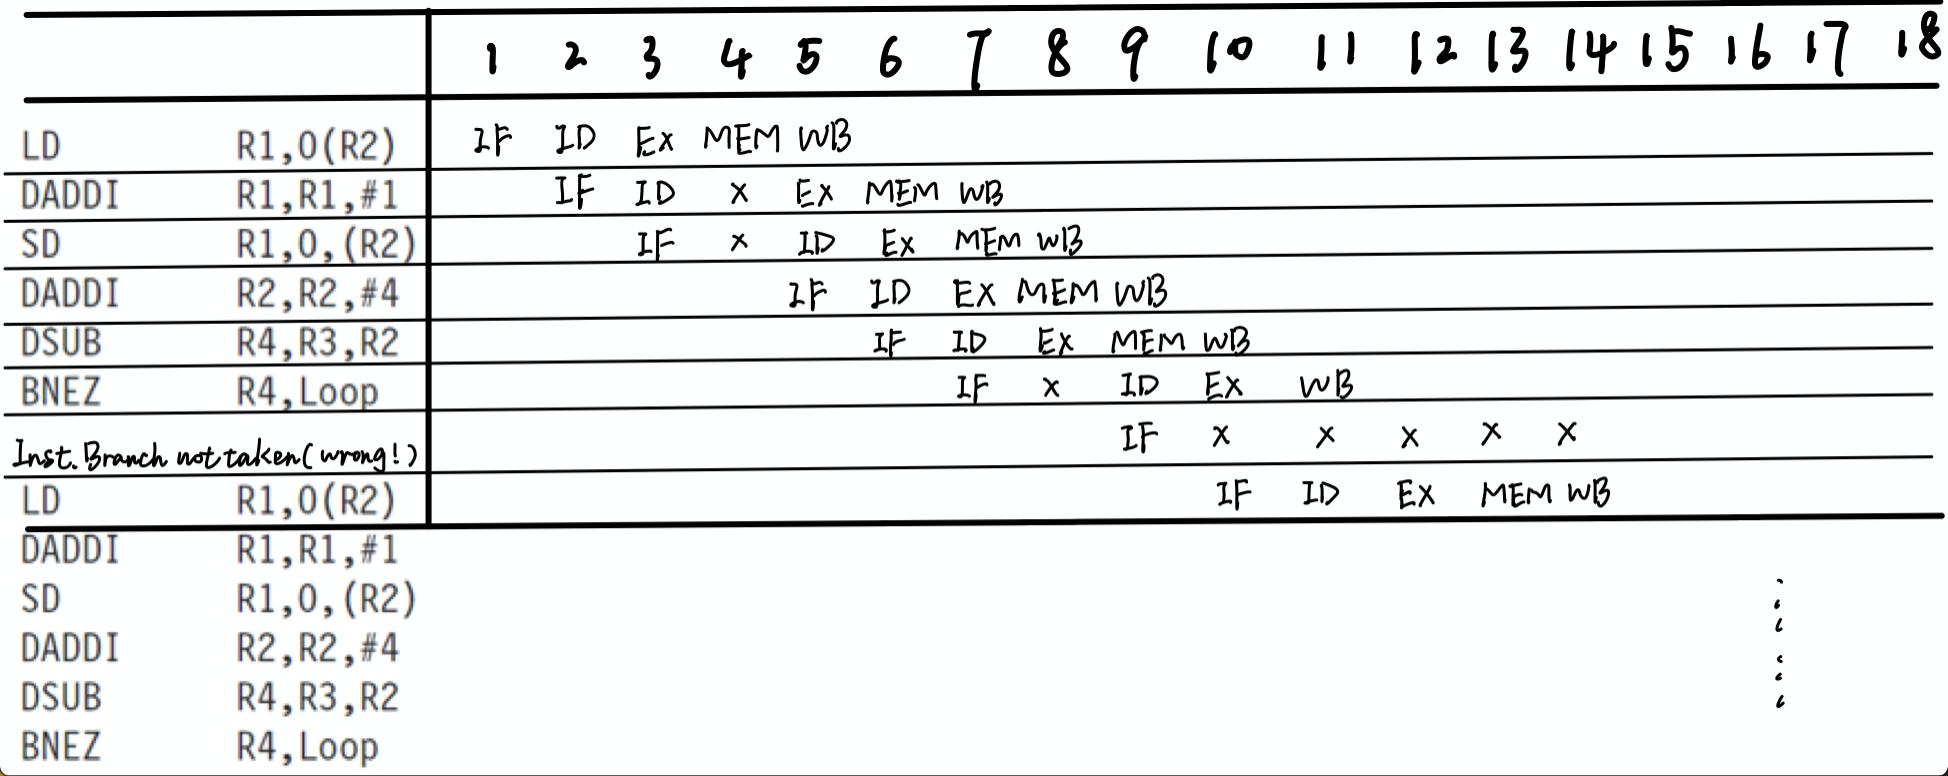 1 2 3 4 5 6 7 8 9 10 11 12 13 14 15 16 17 18
LD R1,0(R2) IF ID Ex MEM WB
DADDI R1,R1,#1 IF ID x Ex MEM WB
SD R1,0,(R2) IF x ID Ex MEM WB
DADDI R2,R2,#4 IF ID EX MEM WB
DSUB R4,R3,R2 IF ID Ex MEM WB
BNEZ R4,Loop IF x ID EX WB
Inst. Branch not taken (wrong!) IF x x x x x
LD R1,0(R2) IF ID EX MEM WB
DADDI R1,R1,#1
SD R1,0,(R2)
DADDI R2,R2,#4
DSUB R4,R3,R2
BNEZ R4,Loop